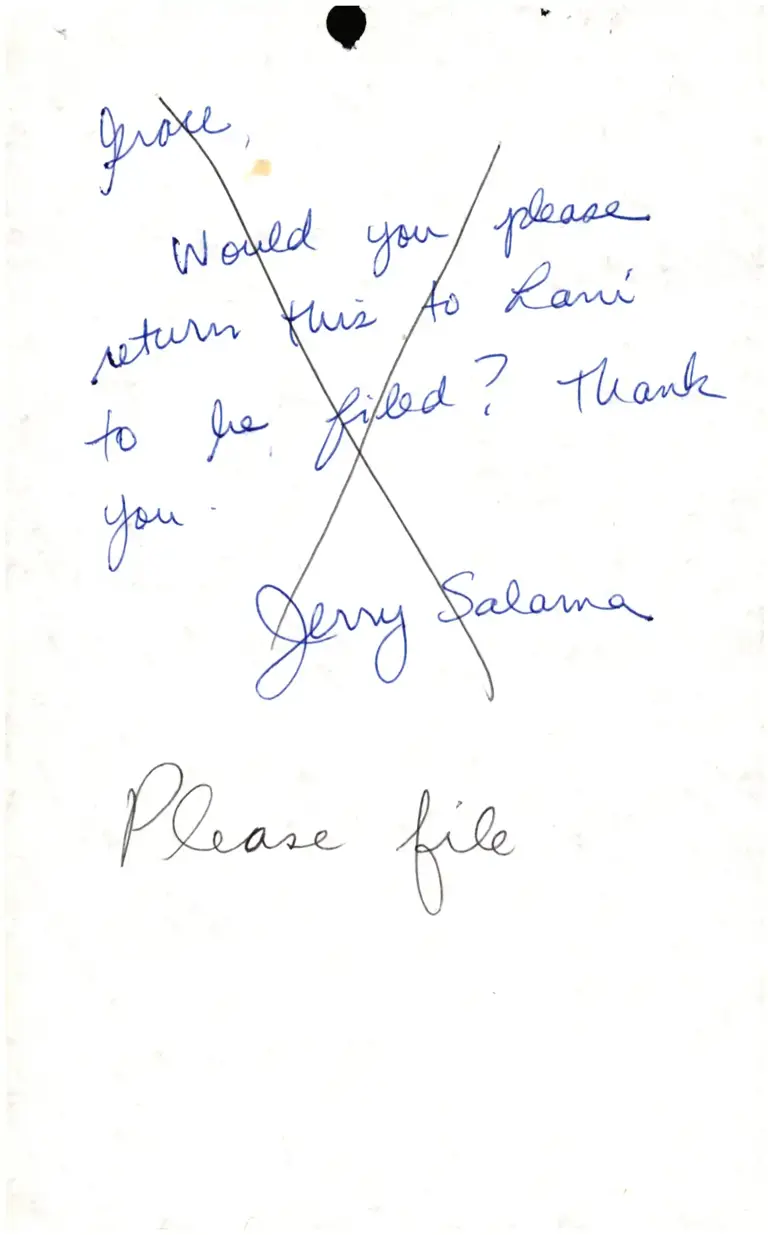 Grace,
Would you please
return this to Lani
to be filed? Thank
you.
Jerry Salama
Please file